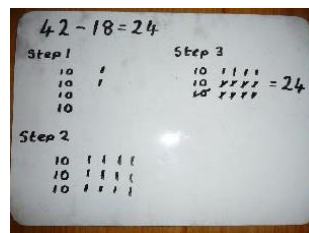 42 - 18 = 24
Step 1
10 1
10 1
10
10
Step 2
10 1 1 1 1
10 1 1 1 1
10 1 1 1 1
Step 3
10 1 1 1 1
10 1 1 1 1 = 24
10 1 1 1 1